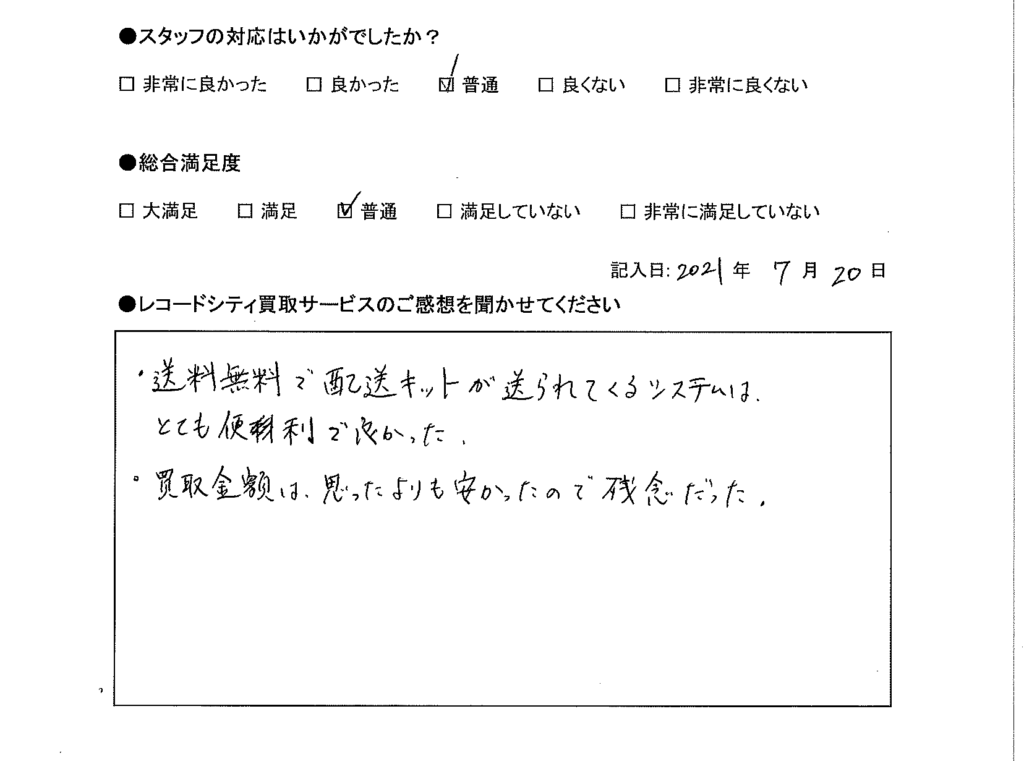 ●スタッフの対応はいかがでしたか？
□ 非常に良かった □ 良かった ☑ 普通 □ 良くない □ 非常に良くない
●総合満足度
□ 大満足 □ 満足 ☑ 普通 □ 満足していない □ 非常に満足していない
記入日: 2021 年 7 月 20 日
●レコードシティ買取サービスのご感想を聞かせてください
・送料無料で配送キットが送られてくるシステムは、
とても便利で良かった.
・買取金額は、思ったよりも安かったので残念だった.